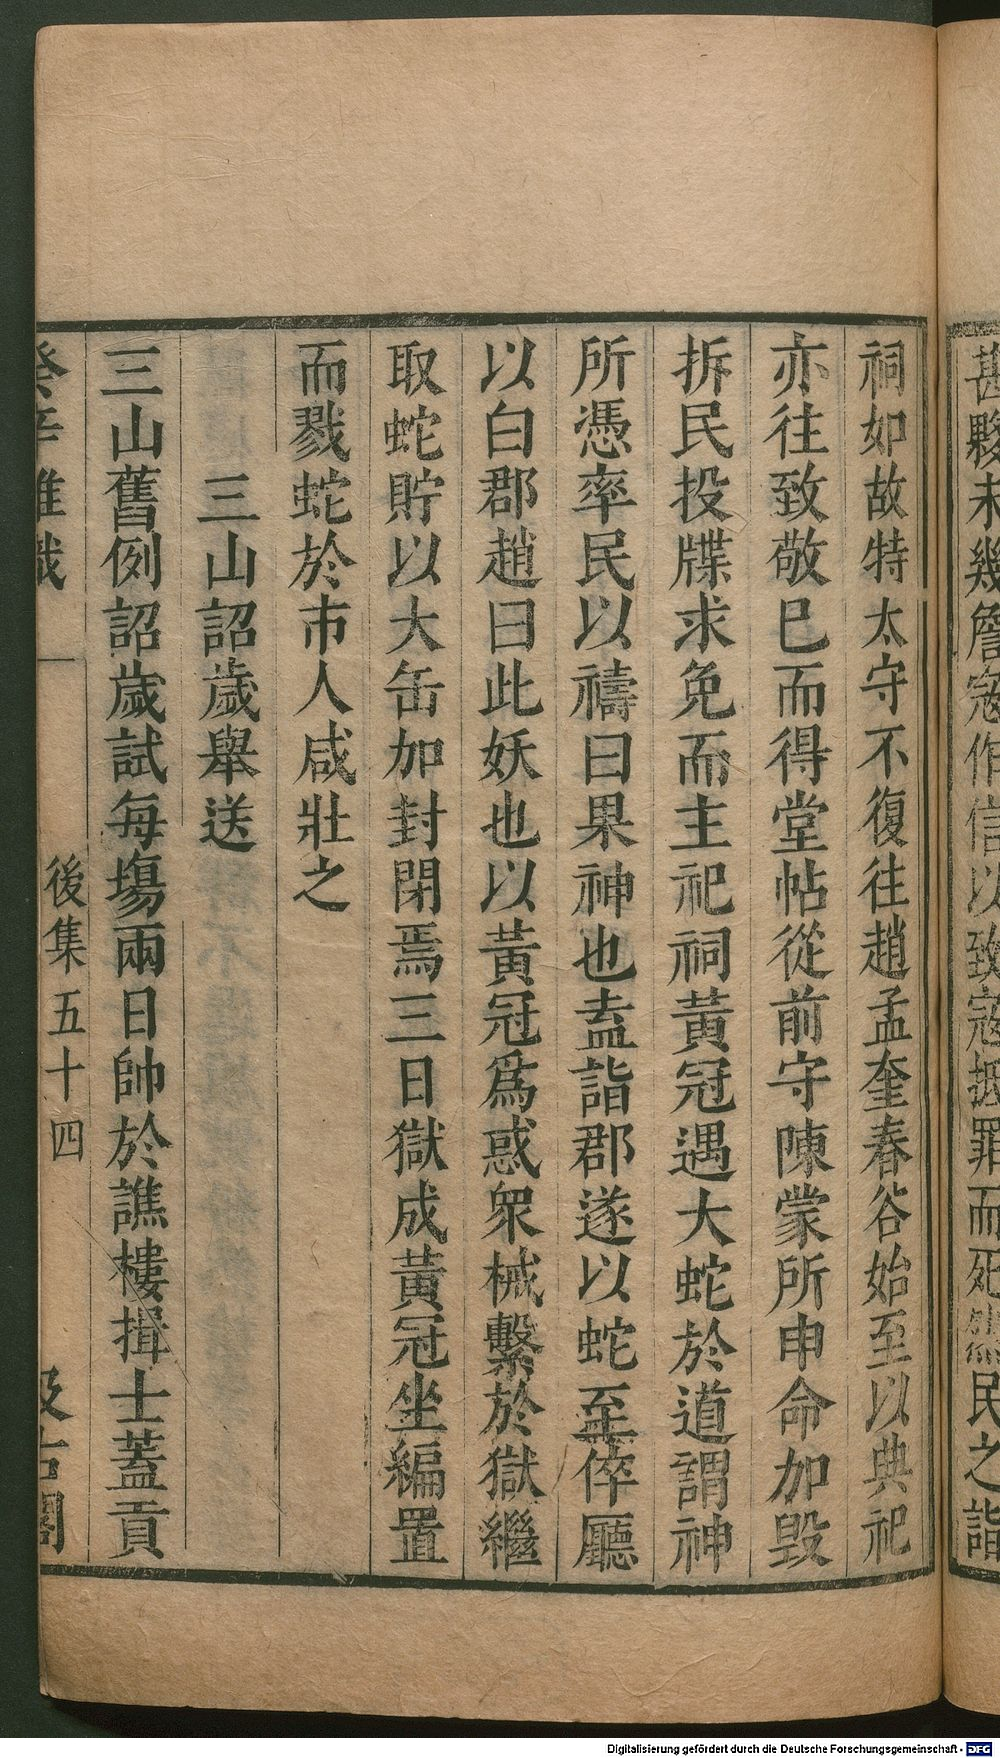 甚夥未幾詹寇作信以致寇抵罪而死然民之詣
祠如故特太守不復往趙孟奎春谷始至以典祀
亦往致敬已而得堂帖從前守陳蒙所申命加毀
拆民投牒求免而主祀祠黃冠遇大蛇於道謂神
所憑率民以禱曰果神也盍詣郡遂以蛇至倅廳
以白郡趙曰此妖也以黃冠爲惑衆械繫於獄繼
取蛇貯以大缶加封閉焉三日獄成黃冠坐編置
而戮蛇於市人咸壯之
三山詔歲舉送
三山舊例詔歲試每塲兩日帥於譙樓揖士蓋貢
癸辛雜識 後集 五十四 汲古閣
Digitalisierung gefördert durch die Deutsche Forschungsgemeinschaft - DFG